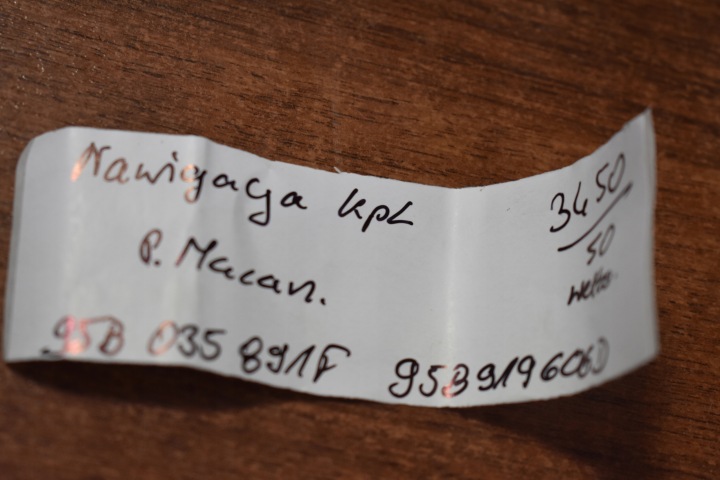 Nawigacja kpl
3450
50
P. Macan.
95B 035 891F 95B919606D